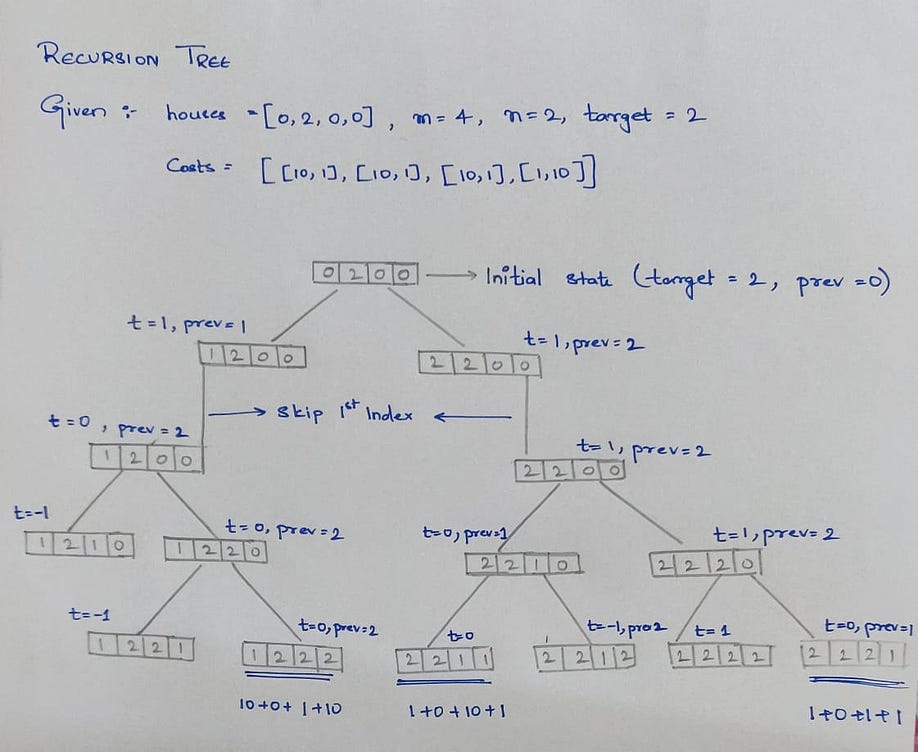 RECURSION TREE
Given :- houses = [0, 2, 0, 0] , m = 4, n = 2, target = 2
Costs = [ [10, 1], [10, 1], [10, 1], [1, 10] ]
0 2 0 0 → Initial state (target = 2, prev = 0)
t = 1, prev = 1
t = 1, prev = 2
1 2 0 0
2 2 0 0
→ Skip 1st Index ←
t = 0 , prev = 2
t = 1, prev = 2
1 2 0 0
2 2 0 0
t = -1
t = 0, prev = 2
t = 0, prev = 1
t = 1, prev = 2
1 2 1 0
1 2 2 0
2 2 1 0
2 2 2 0
t = -1
t = 0, prev = 2
t = 0
t = -1, pro 2
t = 1
t = 0, prev = 1
1 2 2 1
1 2 2 2
2 2 1 1
2 2 1 2
2 2 2 2
2 2 2 1
10 + 0 + 1 + 10
1 + 0 + 10 + 1
1 + 0 + 1 + 1